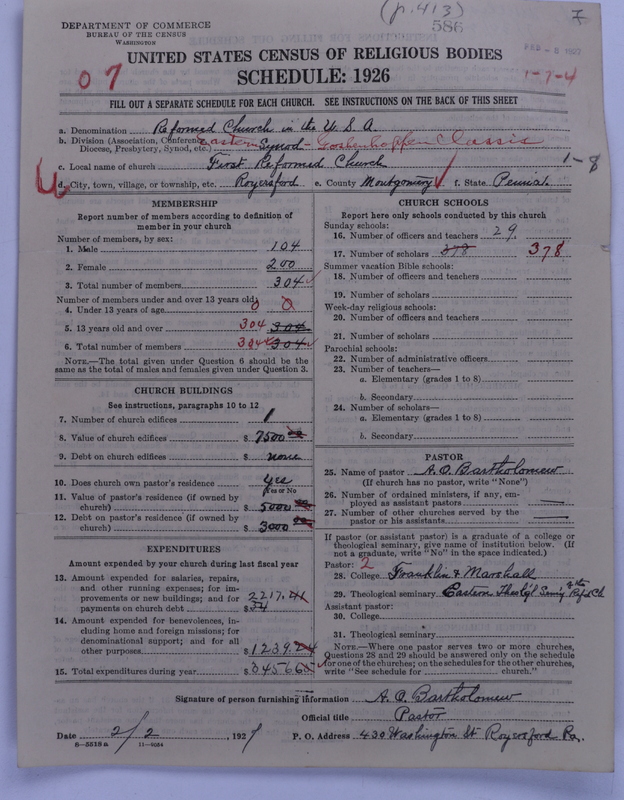 (p. 413)
586
7
DEPARTMENT OF COMMERCE
BUREAU OF THE CENSUS
WASHINGTON
UNITED STATES CENSUS OF RELIGIOUS BODIES
SCHEDULE: 1926
0 7
1-7-4
FILL OUT A SEPARATE SCHEDULE FOR EACH CHURCH. SEE INSTRUCTIONS ON THE BACK OF THIS SHEET
a. Denomination Reformed Church in the U.S.A.
b. Division (Association, Conference, Diocese, Presbytery, Synod, etc.) Eastern Synod - Goshenhoppen Classis
c. Local name of church First Reformed Church
1-8
d. City, town, village, or township, etc. Royersford e. County Montgomery f. State Penna.
MEMBERSHIP
Report number of members according to definition of
member in your church
Number of members, by sex:
1. Male 104
2. Female 200
3. Total number of members 304
Number of members under and over 13 years old:
4. Under 13 years of age 0 0
5. 13 years old and over 304 304
6. Total number of members 304 304
NOTE.—The total given under Question 6 should be
same as the total of males and females given under Question 3.
CHURCH BUILDINGS
See instructions, paragraphs 10 to 12
7. Number of church edifices 1
8. Value of church edifices $ 7500
9. Debt on church edifices $ none
10. Does church own pastor's residence yes
(Yes or No)
11. Value of pastor's residence (if owned by
church) $ 5000
12. Debt on pastor's residence (if owned by
church) $ 3000
EXPENDITURES
Amount expended by your church during last fiscal year
13. Amount expended for salaries, repairs,
and other running expenses; for im-
provements or new buildings; and for
payments on church debt $ 2217.41
14. Amount expended for benevolences, in-
cluding home and foreign missions; for
denominational support; and for all
other purposes $ 1239.24
15. Total expenditures during year $ 3456.65
CHURCH SCHOOLS
Report here only schools conducted by this church
Sunday schools:
16. Number of officers and teachers 29.
17. Number of scholars 378 378
Summer vacation Bible schools:
18. Number of officers and teachers
19. Number of scholars
Week-day religious schools:
20. Number of officers and teachers
21. Number of scholars
Parochial schools:
22. Number of administrative officers
23. Number of teachers—
a. Elementary (grades 1 to 8)
b. Secondary
24. Number of scholars—
a. Elementary (grades 1 to 8)
b. Secondary
PASTOR
25. Name of pastor A. O. Bartholomew
(If church has no pastor, write "None")
26. Number of ordained ministers, if any, em-
ployed as assistant pastors
27. Number of other churches served by the
pastor or his assistants
If pastor (or assistant pastor) is a graduate of a college or
theological seminary, give name of institution below. (If
not a graduate, write "No" in the space indicated.)
Pastor: 2
28. College Franklin & Marshall
29. Theological seminary Eastern Theol'gl Seminy of the Ref'd Ch
Assistant pastor:
30. College
31. Theological seminary
NOTE.—Where one pastor serves two or more churches,
Questions 28 and 29 should be answered only on the schedule
for one of the churches; on the schedules for the other churches,
write "See schedule for church."
Signature of person furnishing information A. O. Bartholomew
Official title Pastor
Date 2/2, 1927 P. O. Address 430 Washington St Royersford Pa.
8—5518 a 11—9034